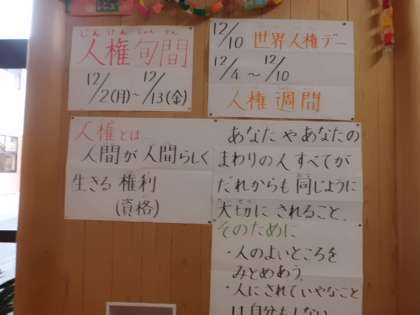 じんけんじゅんかん
人権旬間
12/2(月)~12/13(金)
12/10 世界人権デー
12/4~12/10
人権週間
人権とは…
人間が人間らしく
生きる権利
(資格)
あなたやあなたの
まわりの人すべてが
だれからも同じように
大切にされること。
そのために
・人のよいところを
みとめあう。
・人にされていやなこと
は自分もしない